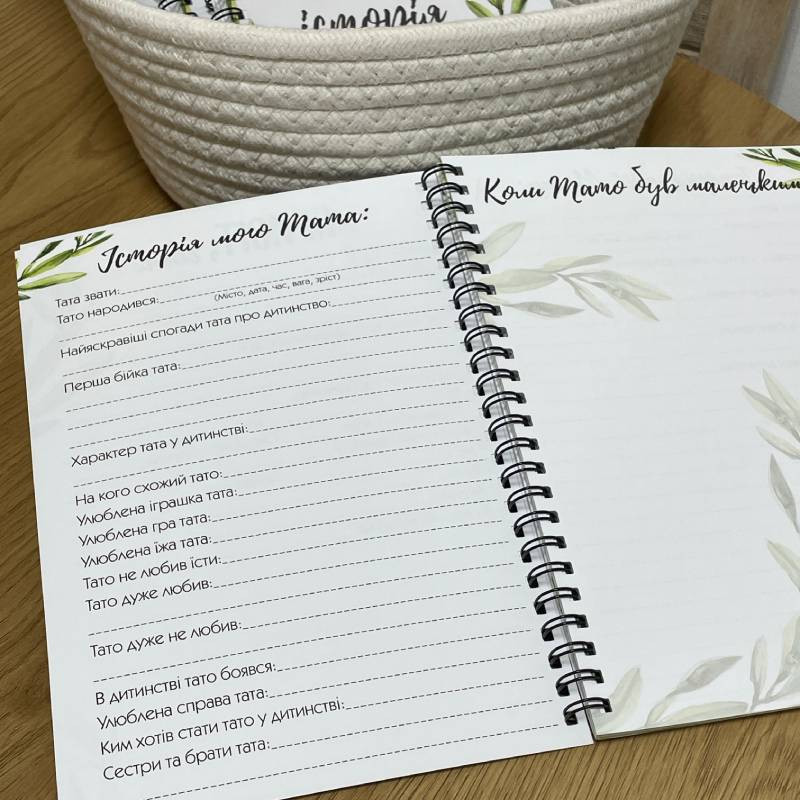 історія
Історія мого Тата:
Тата звати:
Тато народився:
(Місто, дата, час, вага, зріст)
Найяскравіші спогади тата про дитинство:
Перша бійка тата:
Характер тата у дитинстві:
На кого схожий тато:
Улюблена іграшка тата:
Улюблена гра тата:
Улюблена їжа тата:
Тато не любив їсти:
Тато дуже любив:
Тато дуже не любив:
В дитинстві тато боявся:
Улюблена справа тата:
Ким хотів стати тато у дитинстві:
Сестри та брати тата:
Коли Тато був маленьким